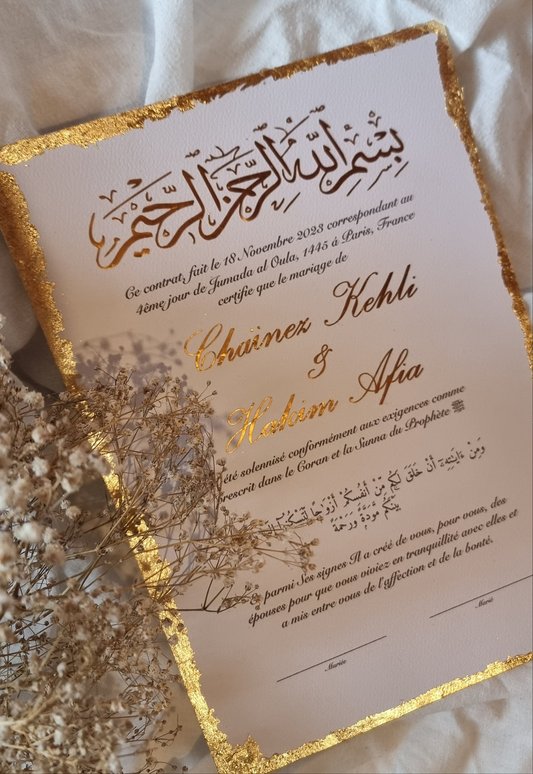 بِسْمِ اللَّهِ الرَّحْمَٰنِ الرَّحِيمِ
Ce contrat, fait le 18 Novembre 2023 correspondant au
4ème jour de Jumada al Oula, 1445 à Paris, France
certifie que le mariage de
Chainez Kehli
&
Hakim Afia
été solennisé conformément aux exigences comme
prescrit dans le Coran et la Sunna du Prophète ﷺ
وَمِنْ ءَايَـٰتِهِۦٓ أَنْ خَلَقَ لَكُم مِّنْ أَنفُسِكُمْ أَزْوَٰجًا لِّتَسْكُنُوٓا۟
بَيْنَكُم مَّوَدَّةً وَرَحْمَةً
parmi Ses signes Il a créé de vous, pour vous, des
épouses pour que vous viviez en tranquillité avec elles et
a mis entre vous de l'affection et de la bonté.
Marié
Mariée